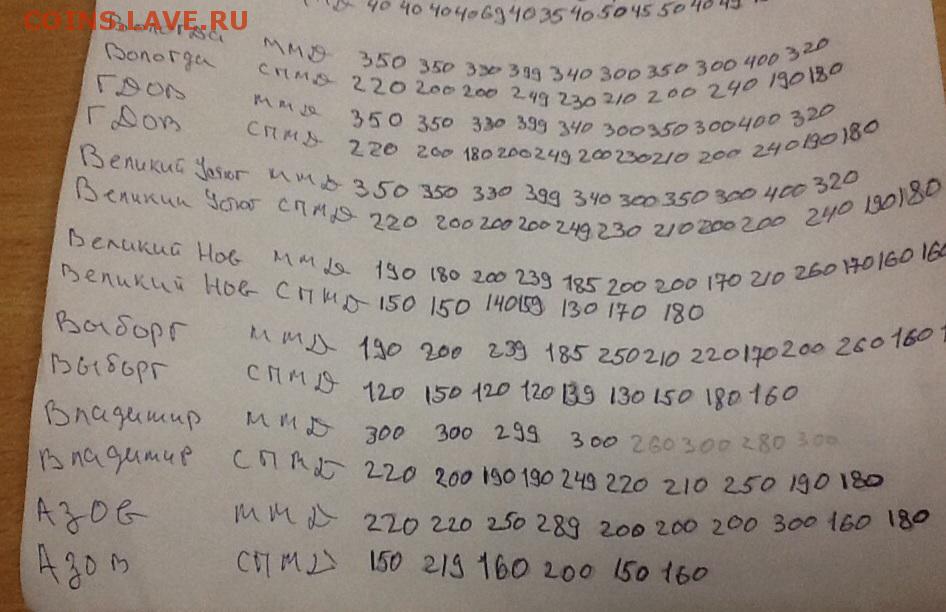 COINS.LAVE.RU
ММД 40 40 40 40 69 40 35 40 50 45 50 40
Вологда ММД 350 350 330 399 340 300 350 300 400 320
Вологда СПМД 220 200 200 249 230 210 200 240 190 180
ГДОВ ММД 350 350 330 399 340 300 350 300 400 320
ГДОВ СПМД 220 200 180 200 249 200 230 210 200 240 190 180
Великий Устюг ММД 350 350 330 399 340 300 350 300 400 320
Великий Устюг СПМД 220 200 200 200 249 230 210 200 200 240 190 180
Великий Нов ММД 190 180 200 239 185 200 200 170 210 260 170 160 160
Великий Нов СПМД 150 150 140 159 130 170 180
Выборг ММД 190 200 239 185 250 210 220 170 200 260 160
Выборг СПМД 120 150 120 120 139 130 150 180 160
Владимир ММД 300 300 299 300 260 300 280 300
Владимир СПМД 220 200 190 190 249 220 210 250 190 180
АЗОВ ММД 220 220 250 289 200 200 200 300 160 180
АЗОВ СПМД 150 219 160 200 150 160